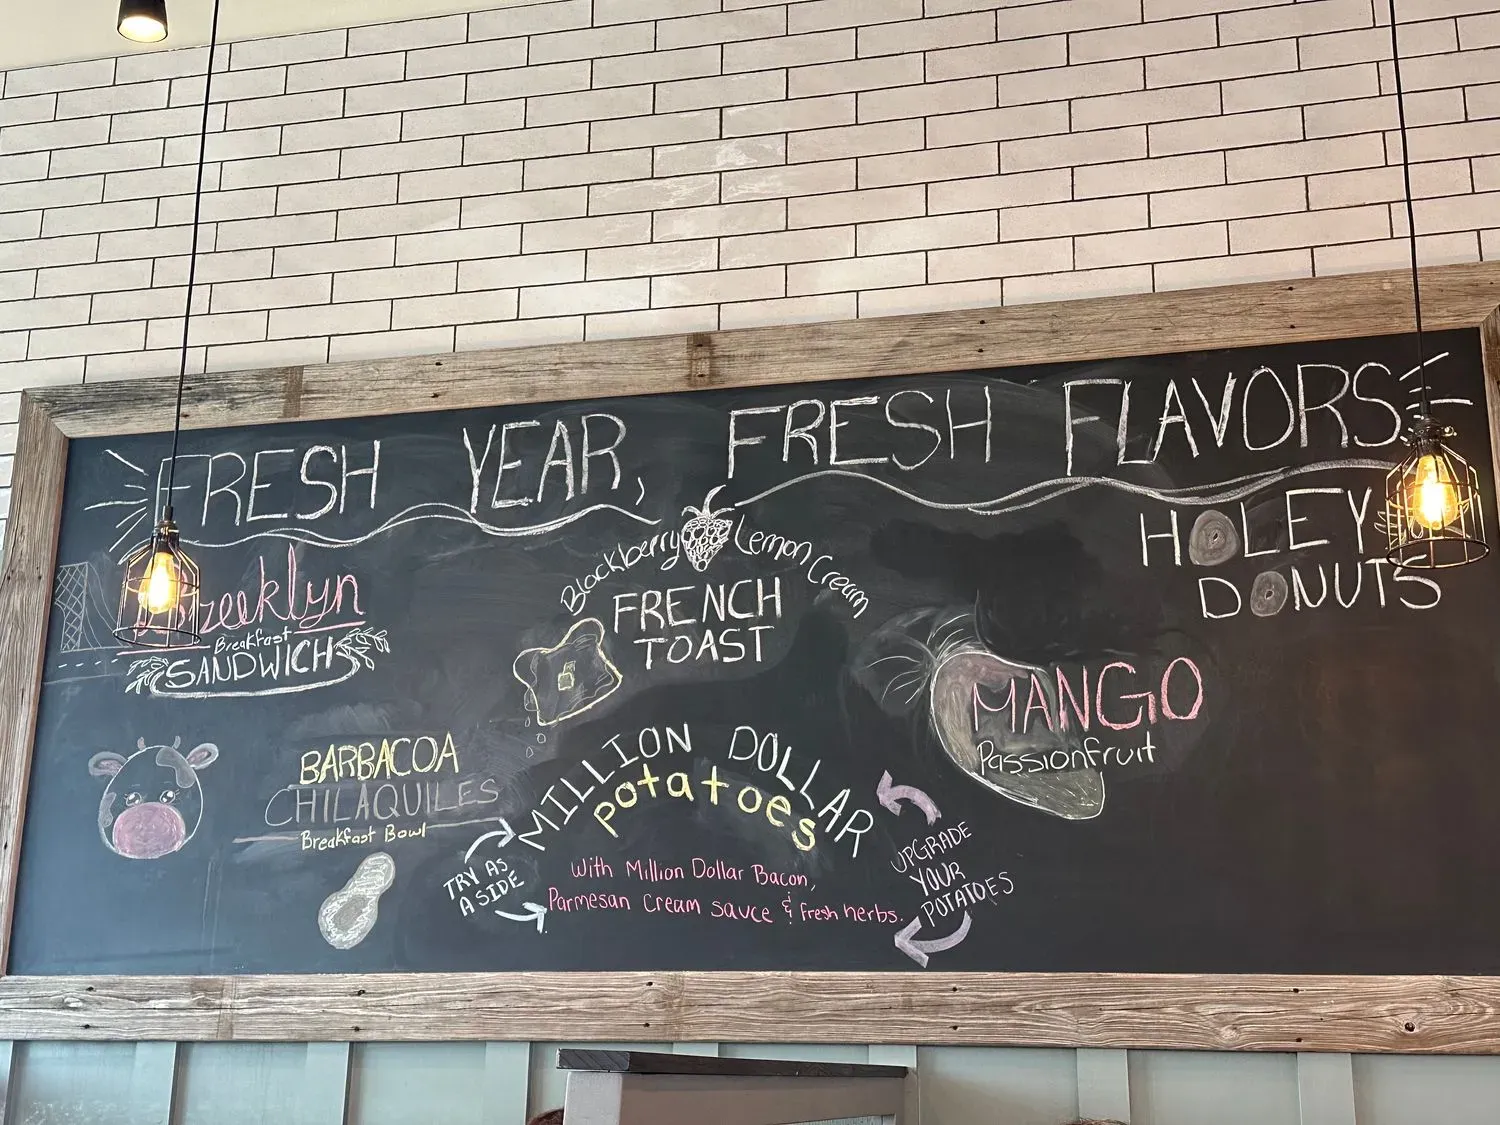 FRESH YEAR, FRESH FLAVORS
Breeklyn
Breakfast
SANDWICH
Blackberry Lemon Cream
FRENCH
TOAST
HOLEY
DONUTS
MANGO
Passionfruit
BARBACOA
CHILAQUILES
Breakfast Bowl
MILLION DOLLAR
potatoes
with Million Dollar Bacon,
Parmesan cream sauce & fresh herbs.
TRY AS
A SIDE
UPGRADE
YOUR
POTATOES